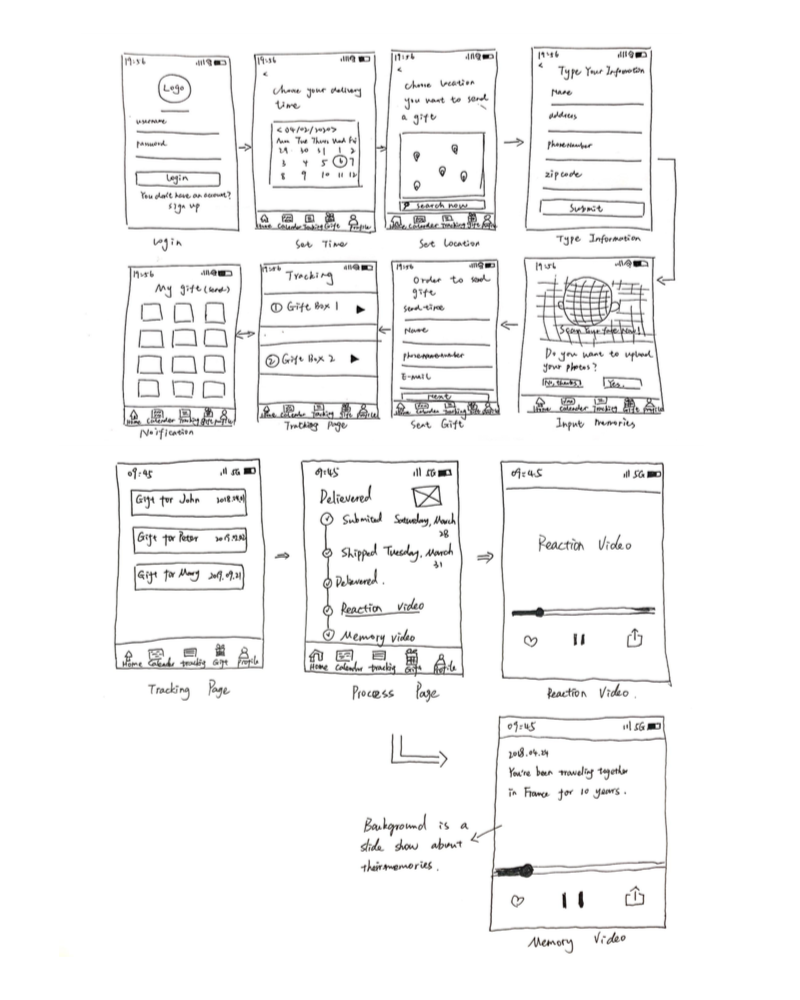 19:56
Logo
username
password
Login
You don't have an account?
sign up
Login
19:56
<
choose your delivery
time
< 04/02/2020 >
29 30 31 1 2
3 4 5 6 7
8 9 10 11 12
Home Calender Tracking Gift Profile
Set Time
19:56
<
choose location
you want to send
a gift
search now
Home Calender Tracking Gift Profile
Set Location
19:56
<
Type Your Information
Name
address
phone number
zip code
Submit
Type Information
19:56
My gift (send)
Home Calender Tracking Gift Profile
19:56
Tracking
① Gift Box 1
② Gift Box 2
Home Calender Tracking Gift Profile
Tracking Page
19:56
Order to send
gift
Send time
Name
phone number
E-mail
Next
Home Calender Tracking Gift Profile
Sent Gift
19:56
Scan Your face Now!
Do you want to upload
your photos?
No, thanks Yes.
Home Calender Tracking Gift Profile
Input Memories
09:45 5G
Gift for John
Gift for Peter
Gift for Mary 2019.09.21
Home Calender tracking Gift Profile
Tracking Page
09:45 5G
Delievered
Submited Saturday, March
28
Shipped Tuesday, March
31
Delievered.
Reaction Video
Memory video
Home Calender tracking Gift Profile
Process Page
09:45 5G
Reaction Video
Reaction Video.
09:45 5G
2018.04.24
You're been traveling together
in France for 10 years.
Background is a
slide show about
their memories.
Memory Video